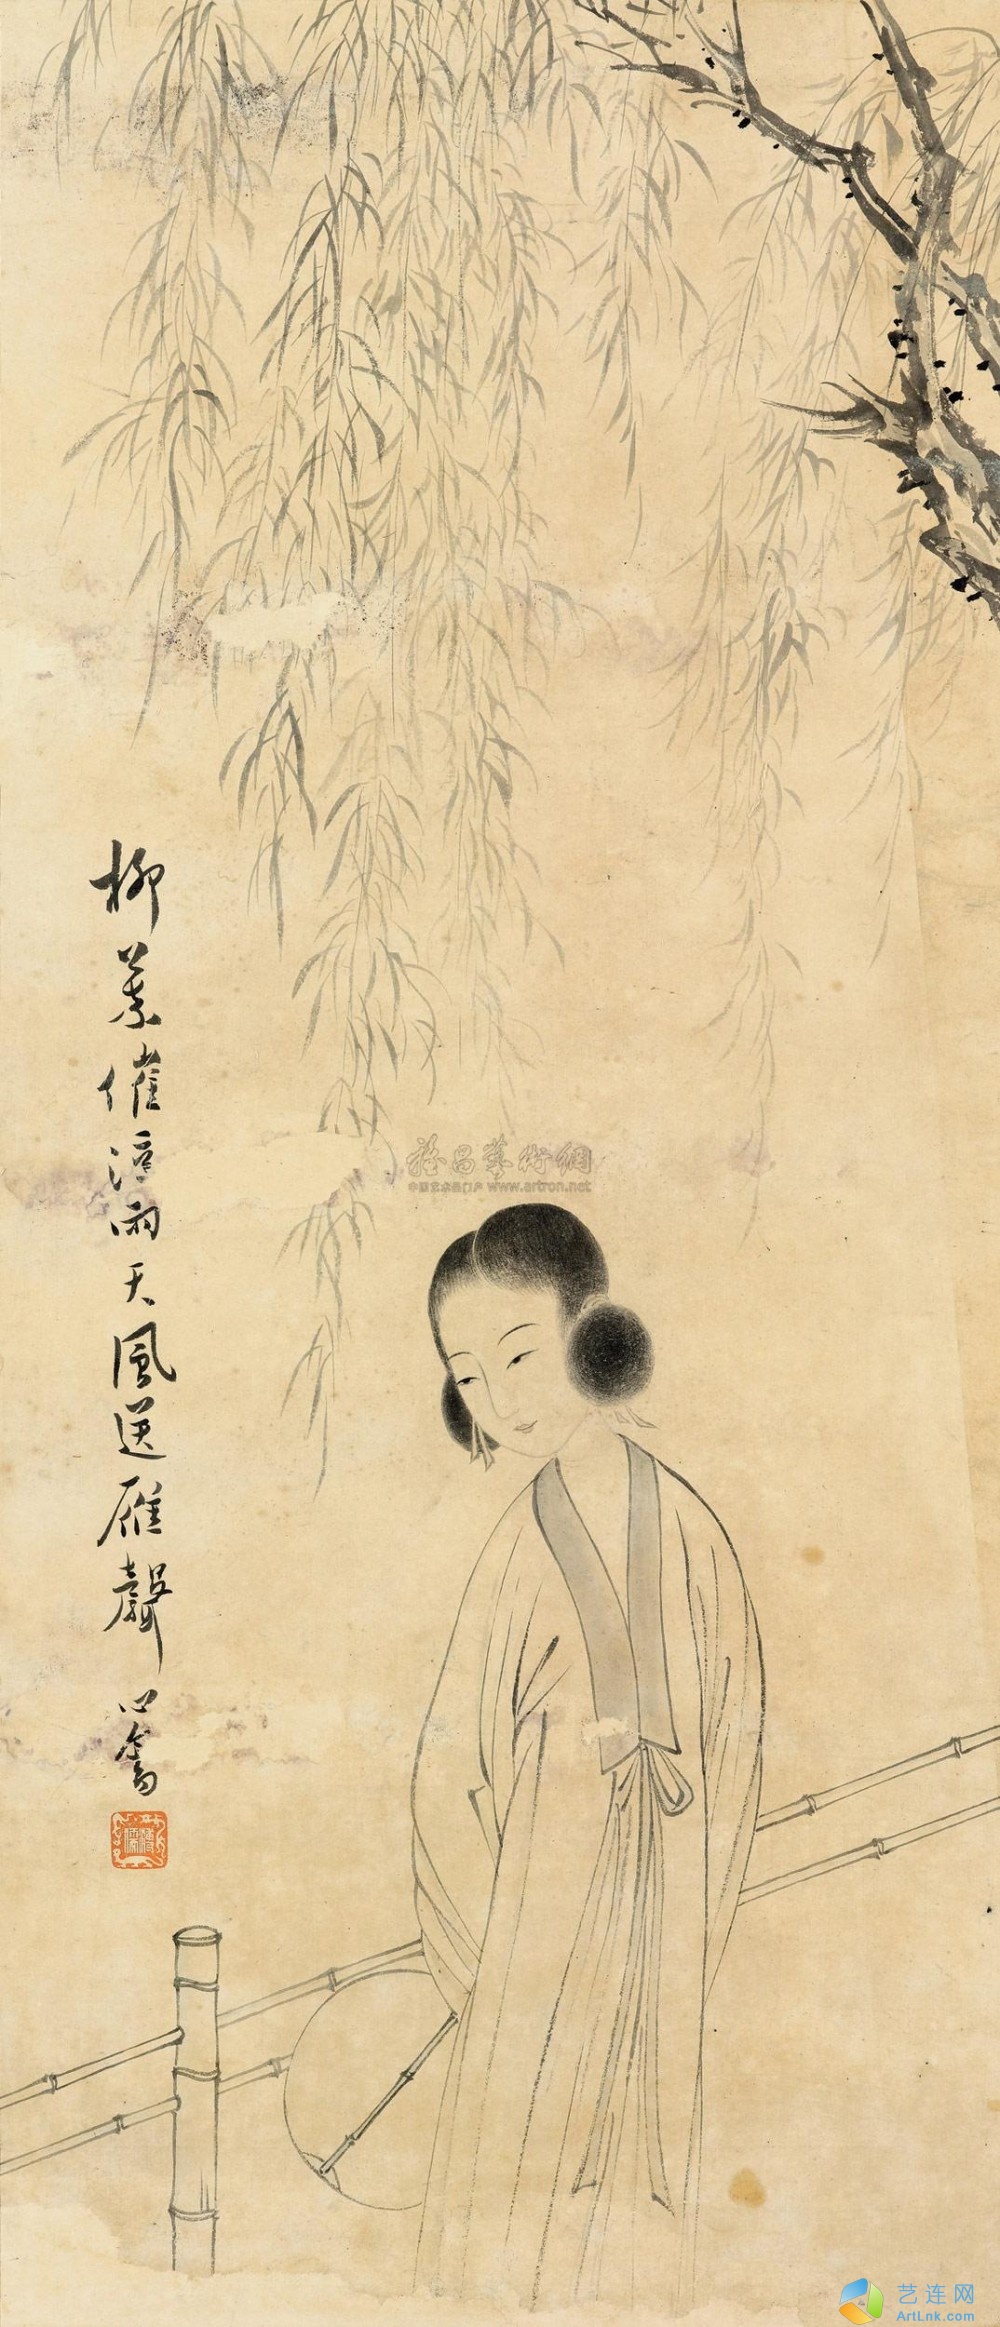 柳葉催凉雨天風送雁聲
心畬
雅昌藝術網
中国艺术品门户 www.artron.net
艺连网
ArtLnk.com